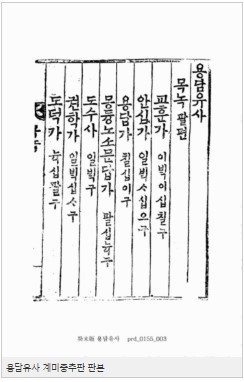 용담유사
목녹 팔편
교훈가 이빅이십칠구
안심가 일빅ᄉ십오구
용담가 칠십이구
몽듕노소문답가 팔십뉵구
도수사 일빅구
권학가 일빅십ᄉ구
도덕가 뉵십팔구
용담유사 prd_0155_003
용담유사 계미중추판 판본